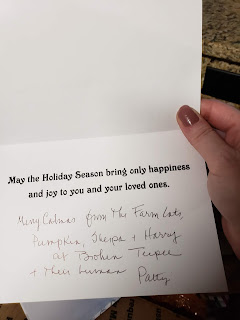 May the Holiday Season bring only happiness
and joy to you and your loved ones.
Merry Catmas from The Farm Cats,
Pumpkin, Sherpa + Harry
at Broken Teepee
+ their human Patty